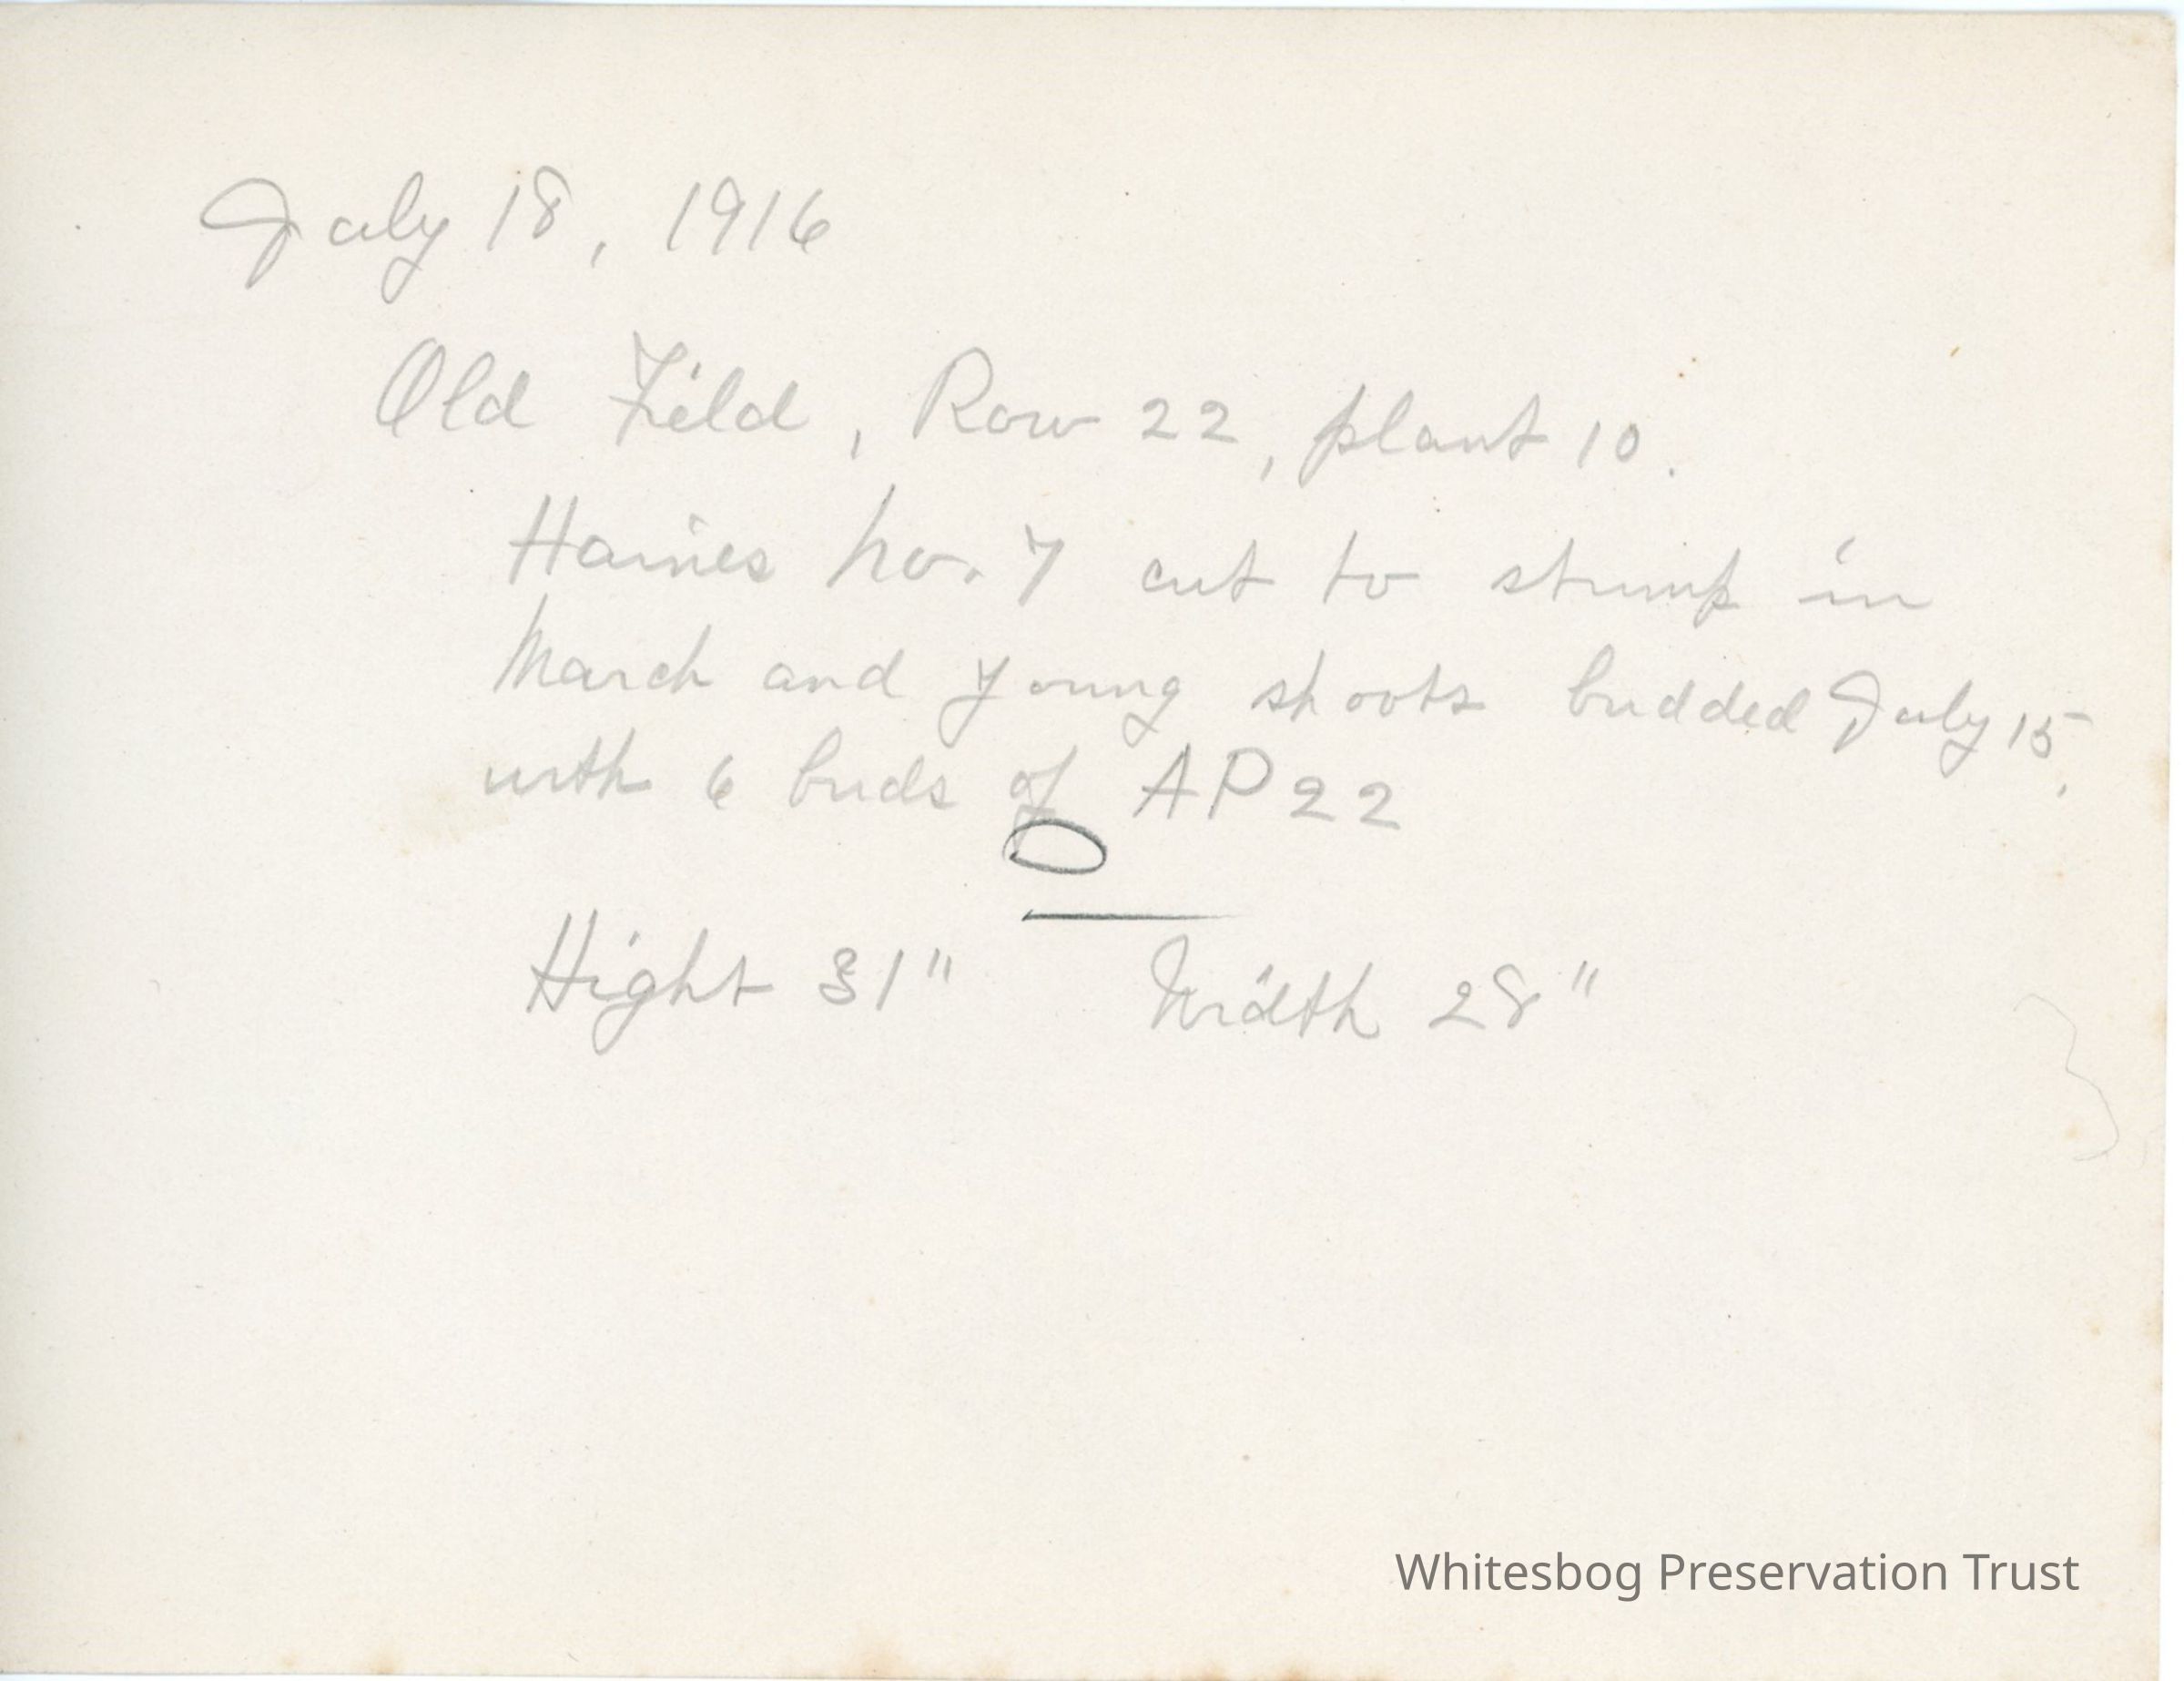 July 18, 1916
Old Field, Row 22, plant 10.
Haines No. 7 cut to stump in
March and young shoots budded July 15,
with 6 buds of AP22
Hight 31" Width 28"
Whitesbog Preservation Trust